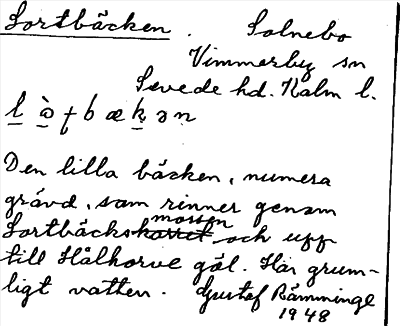 Lortbäcken. Solnebo
Vimmerby sn
Sevede hd. Kalm l.
Den lilla bäcken, numera
grävd, som rinner genom
Lortbäcksmossen och upp
till Hålhorve göl. Har grum-
ligt vatten. Gustaf Rämminge
1948